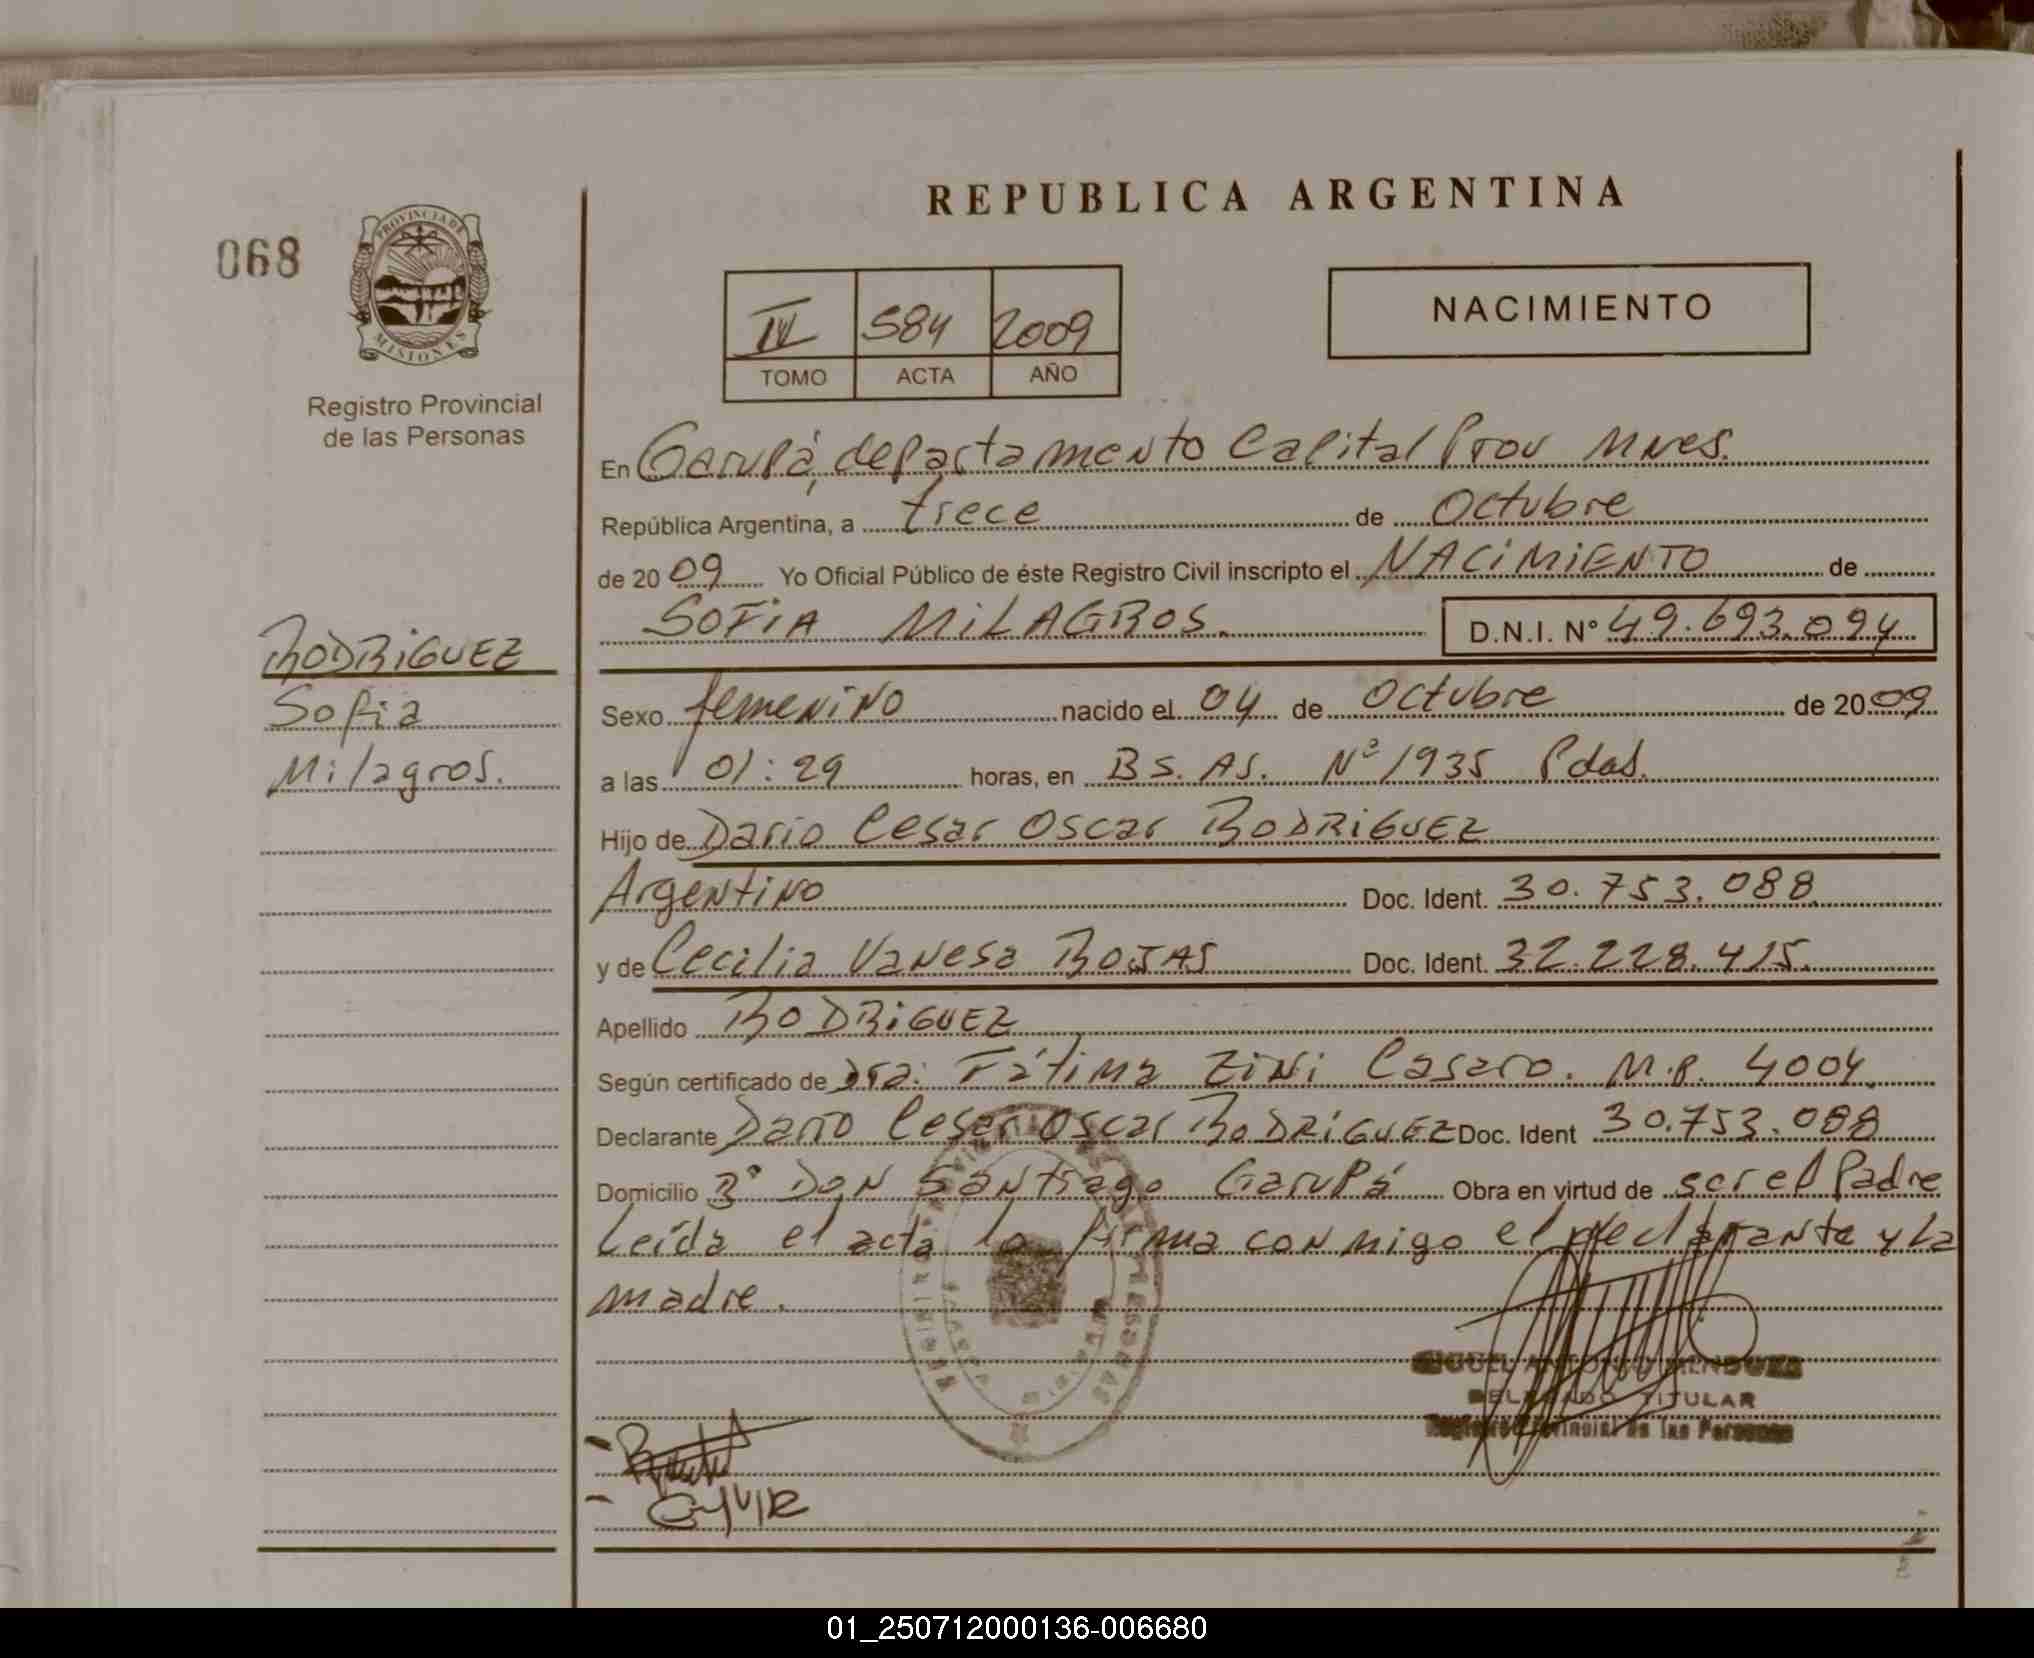 REPUBLICA ARGENTINA
068
PROVINCIA DE
MISIONES
Registro Provincial
de las Personas
IV 584 2009
TOMO ACTA AÑO
NACIMIENTO
En Garupá, departamento Capital Prov Mnes.
República Argentina, a trece de Octubre
de 2009 Yo Oficial Público de éste Registro Civil inscripto el NACIMIENTO de
SOFIA MILAGROS. D.N.I. Nº 49.693.094
RODRIGUEZ
Sofia
Milagros.
Sexo femenino nacido el 04 de Octubre de 2009
a las 01:29 horas, en Bs. As. Nº 1935 Pdas.
Hijo de Dario Cesar Oscar RODRIGUEZ
Argentino Doc. Ident. 30.753.088
y de Cecilia Vanesa ROJAS Doc. Ident. 32.228.415.
Apellido RODRIGUEZ
Según certificado de Dra: Fátima Zini Casaro. M.P. 4004
Declarante Dario Cesar Oscar RODRIGUEZ Doc. Ident 30.753.088
Domicilio Bº Don Santiago Garupá Obra en virtud de ser el Padre
Leída el acta la firma conmigo el declarante y la
madre.
DELEGADO TITULAR
Registro Provincial de las Personas
01_250712000136-006680